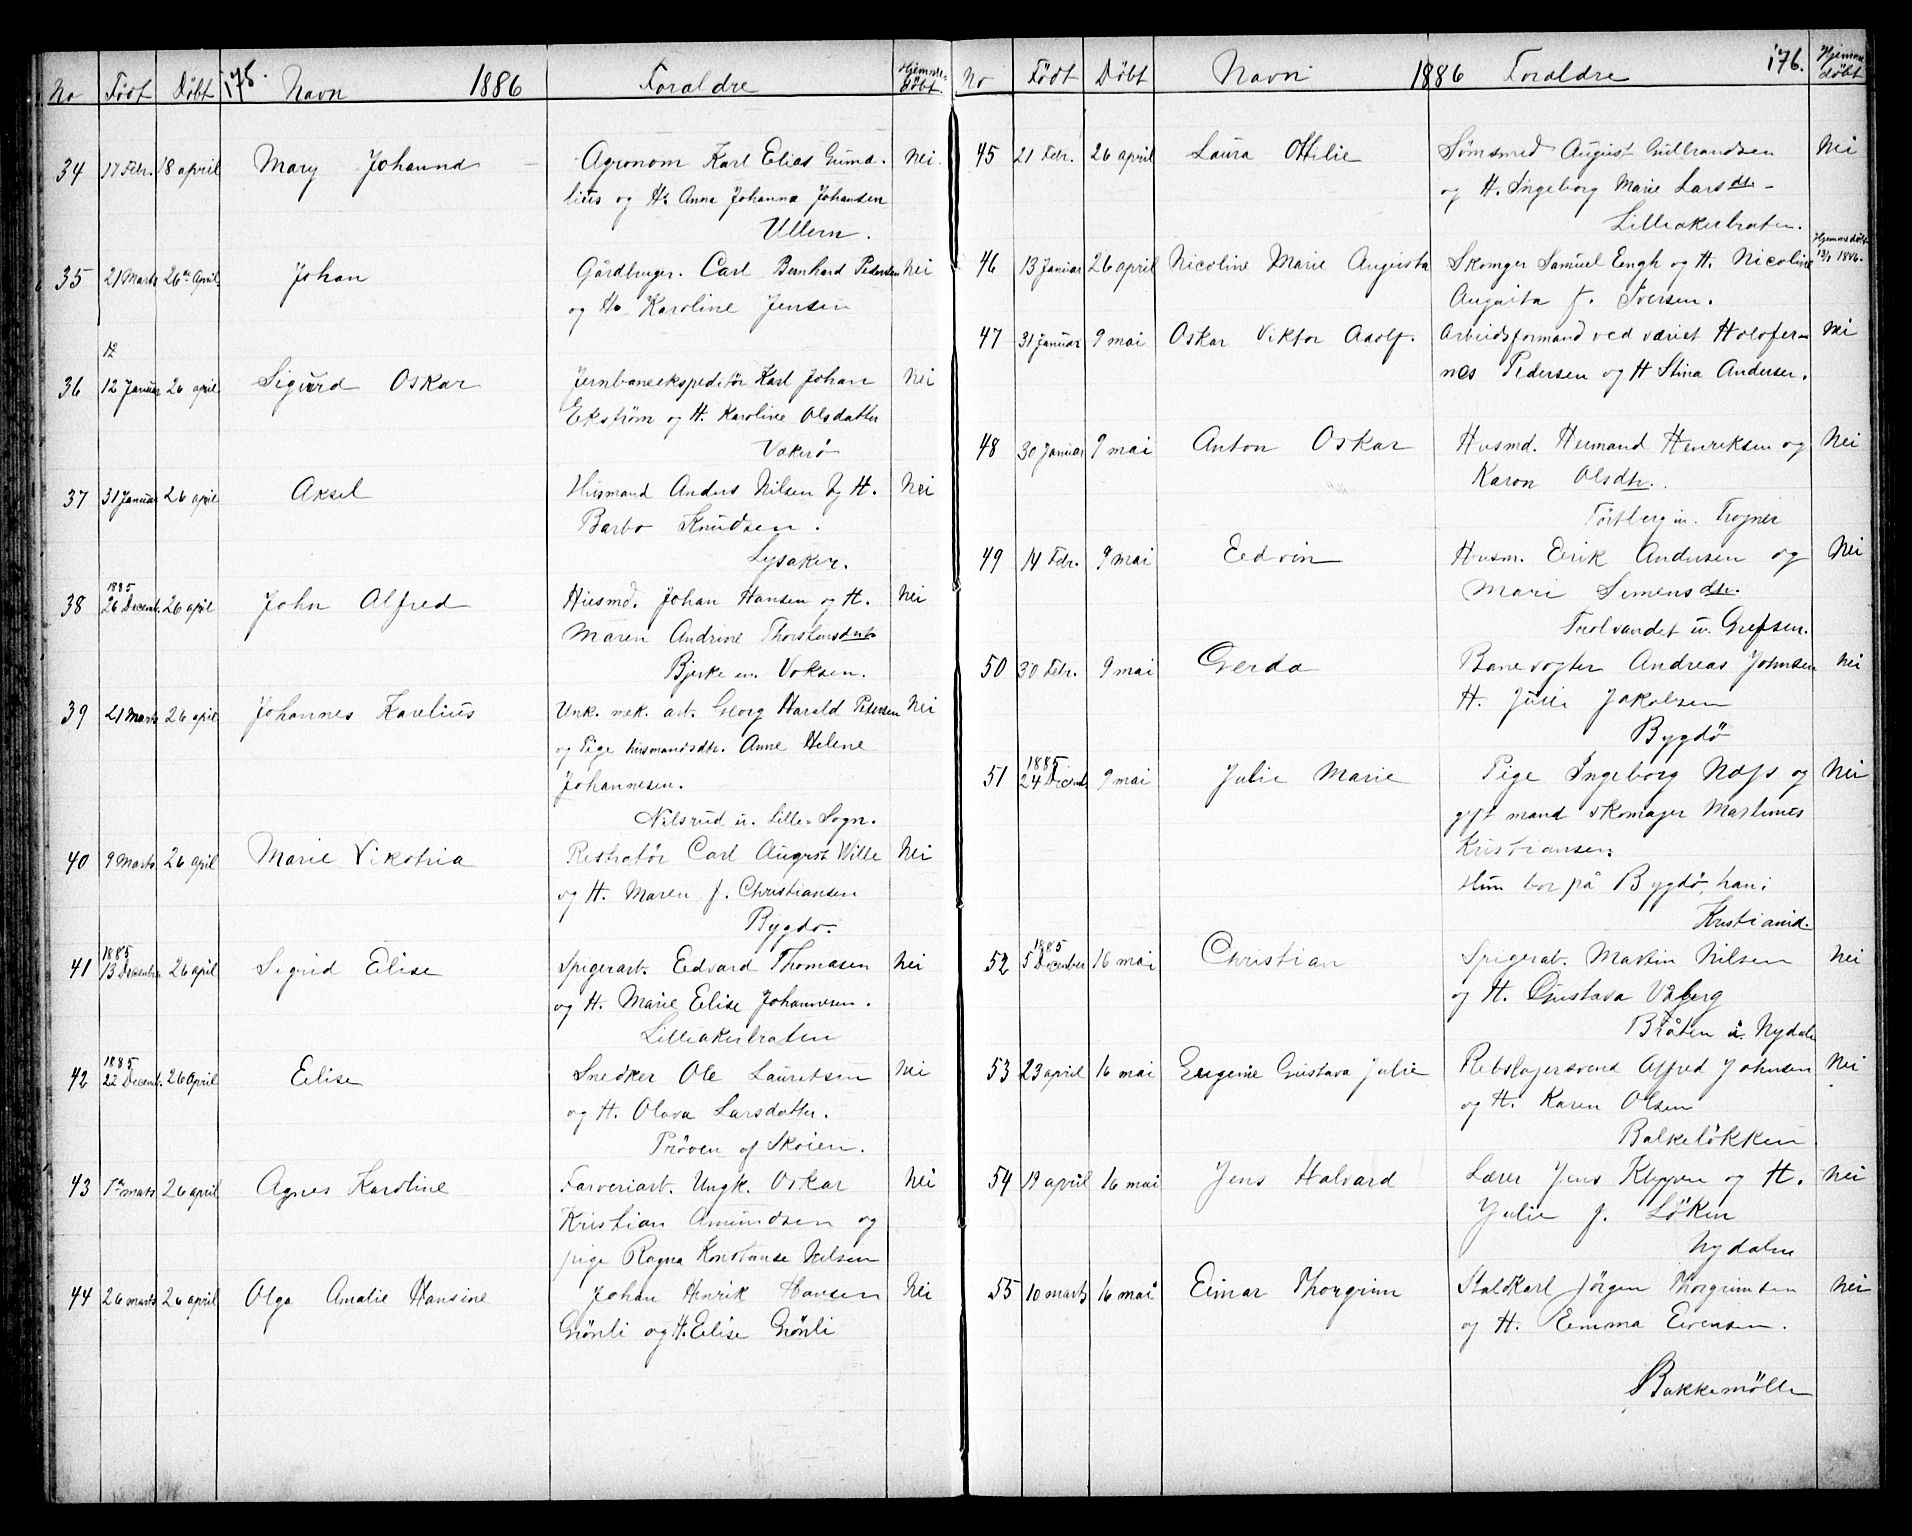 No Født Døbt 175. Navn 1886 Foraldre Hjemmedøbt
34 17 Febr. 18 april Mary Johanna Agronom Karl Elias Gumæ- Nei
lius og H. Anna Johanna Johansen
Ullern.
35 21 Marts 26de April Johan Gårdbruger. Carl Bernhard Pedersen Nei
og H. Karoline Jensen
12
36 12 Januar 26 april Sigurd Oskar Jernbaneekspeditør Karl Johan Nei
Ekstrøm og H. Karoline Olsdatter
Vækerø
37 31 Januar 26 april Aksel Husmand Anders Nilsen og H. Nei
Barbo Knudsen.
Lysaker.
1885
38 26 Decemb. 26 april John Alfred Husmd. Johan Hansen og H. Nei
Maren Andrine Thorstensdatr
Bjerke u. Voksen.
39 21 Marts 26 april Johannes Karelius Unk. mek. arb. Georg Harald Petersen Nei
og Pige husmandsdtr. Anne Helene
Johannesen.
Nilsrud u. Lille-Sogn.
40 9 Marts 26 april Marie Vikotria Restratør Carl August Wille Nei
og H. Maren f. Christiansen
Bygdo.
1885
41 13 December 26 april Sigrid Elise Spigerarb. Edvard Thomasen Nei
og H. Marie Elise Johannesen.
Lilleakerbraten
1885
42 22 Decemb. 26 April Elise Snedker Ole Lauretsen Nei
og H. Olava Larsdatter.
Prøven af Skøien.
43 1ste marts 26 april Agnes Karoline Farveriarb. Ungk. Oskar Nei
Kristian Amundsen og
pige Ragna Konstanse Nilsen
44 26 marts 26 april Olga Amalie Hansine Johan Henrik Hansen Nei
Grönli og H. Elise Grönli
No Födt Döbt Navn 1886 Foraldre 176. Hjemmedøbt
45 21 Febr. 26 april Laura Ottilie Sømsmed August Gulbrandsen Nei
og H. Ingeborg Marie Larsdtr-
Lilleakerbraten.
46 13 Januar 26 april Nicoline Marie Augusta Skomger Samuel Engh og H. Nicoline Hjemmedøbt 13/1 1886.
Augusta f. Iversen.
47 31 Januar 9 mai Oskar Viktor Adolf. Arbeidsformand ved værket Holofer- Nei
nes Pedersen og H Stina Andersen.
48 30 Januar 9 mai Anton Oskar Husmd. Hermand Henriksen og Nei
Karen Olsdtr.
Tørtberg u. Frogner
49 14 Febr. 9 mai Edvin Husm. Erik Andersen og Nei
Mari Simensdtr.
Trolvandet u. Grefsen.
50 30 Febr. 9 mai Gerda Banevogter Andreas Johnsen Nei
H. Julie Jakobsen
Bygdö
1885
51 24 Decemb. 9 mai Julie Marie Pige Ingeborg Næss og Nei
gift mand skomager Martinius
Kristiansen.
Hun bor på Bygdö, han i
Kristiania.
1885
52 5 December 16 mai Christian Spigerab. Martin Nilsen Nei
og H. Gustava Våberg
Bråten u. Nydalen
53 23 april 16 mai Eugenie Gustava Julie Rebslagersvend Alfred Johnsen Nei
og H. Karen Olsen
Balkelökken
54 19 april 16 mai Jens Halvard Lærer Jens Kleppen og H. Nei
Julie f. Löken
Nydalen
55 10 marts 16 mai Einar Thorgrim Staldkarl Jörgen Thorgrimsen Nei
og H. Emma Evensen.
Bakkemölle